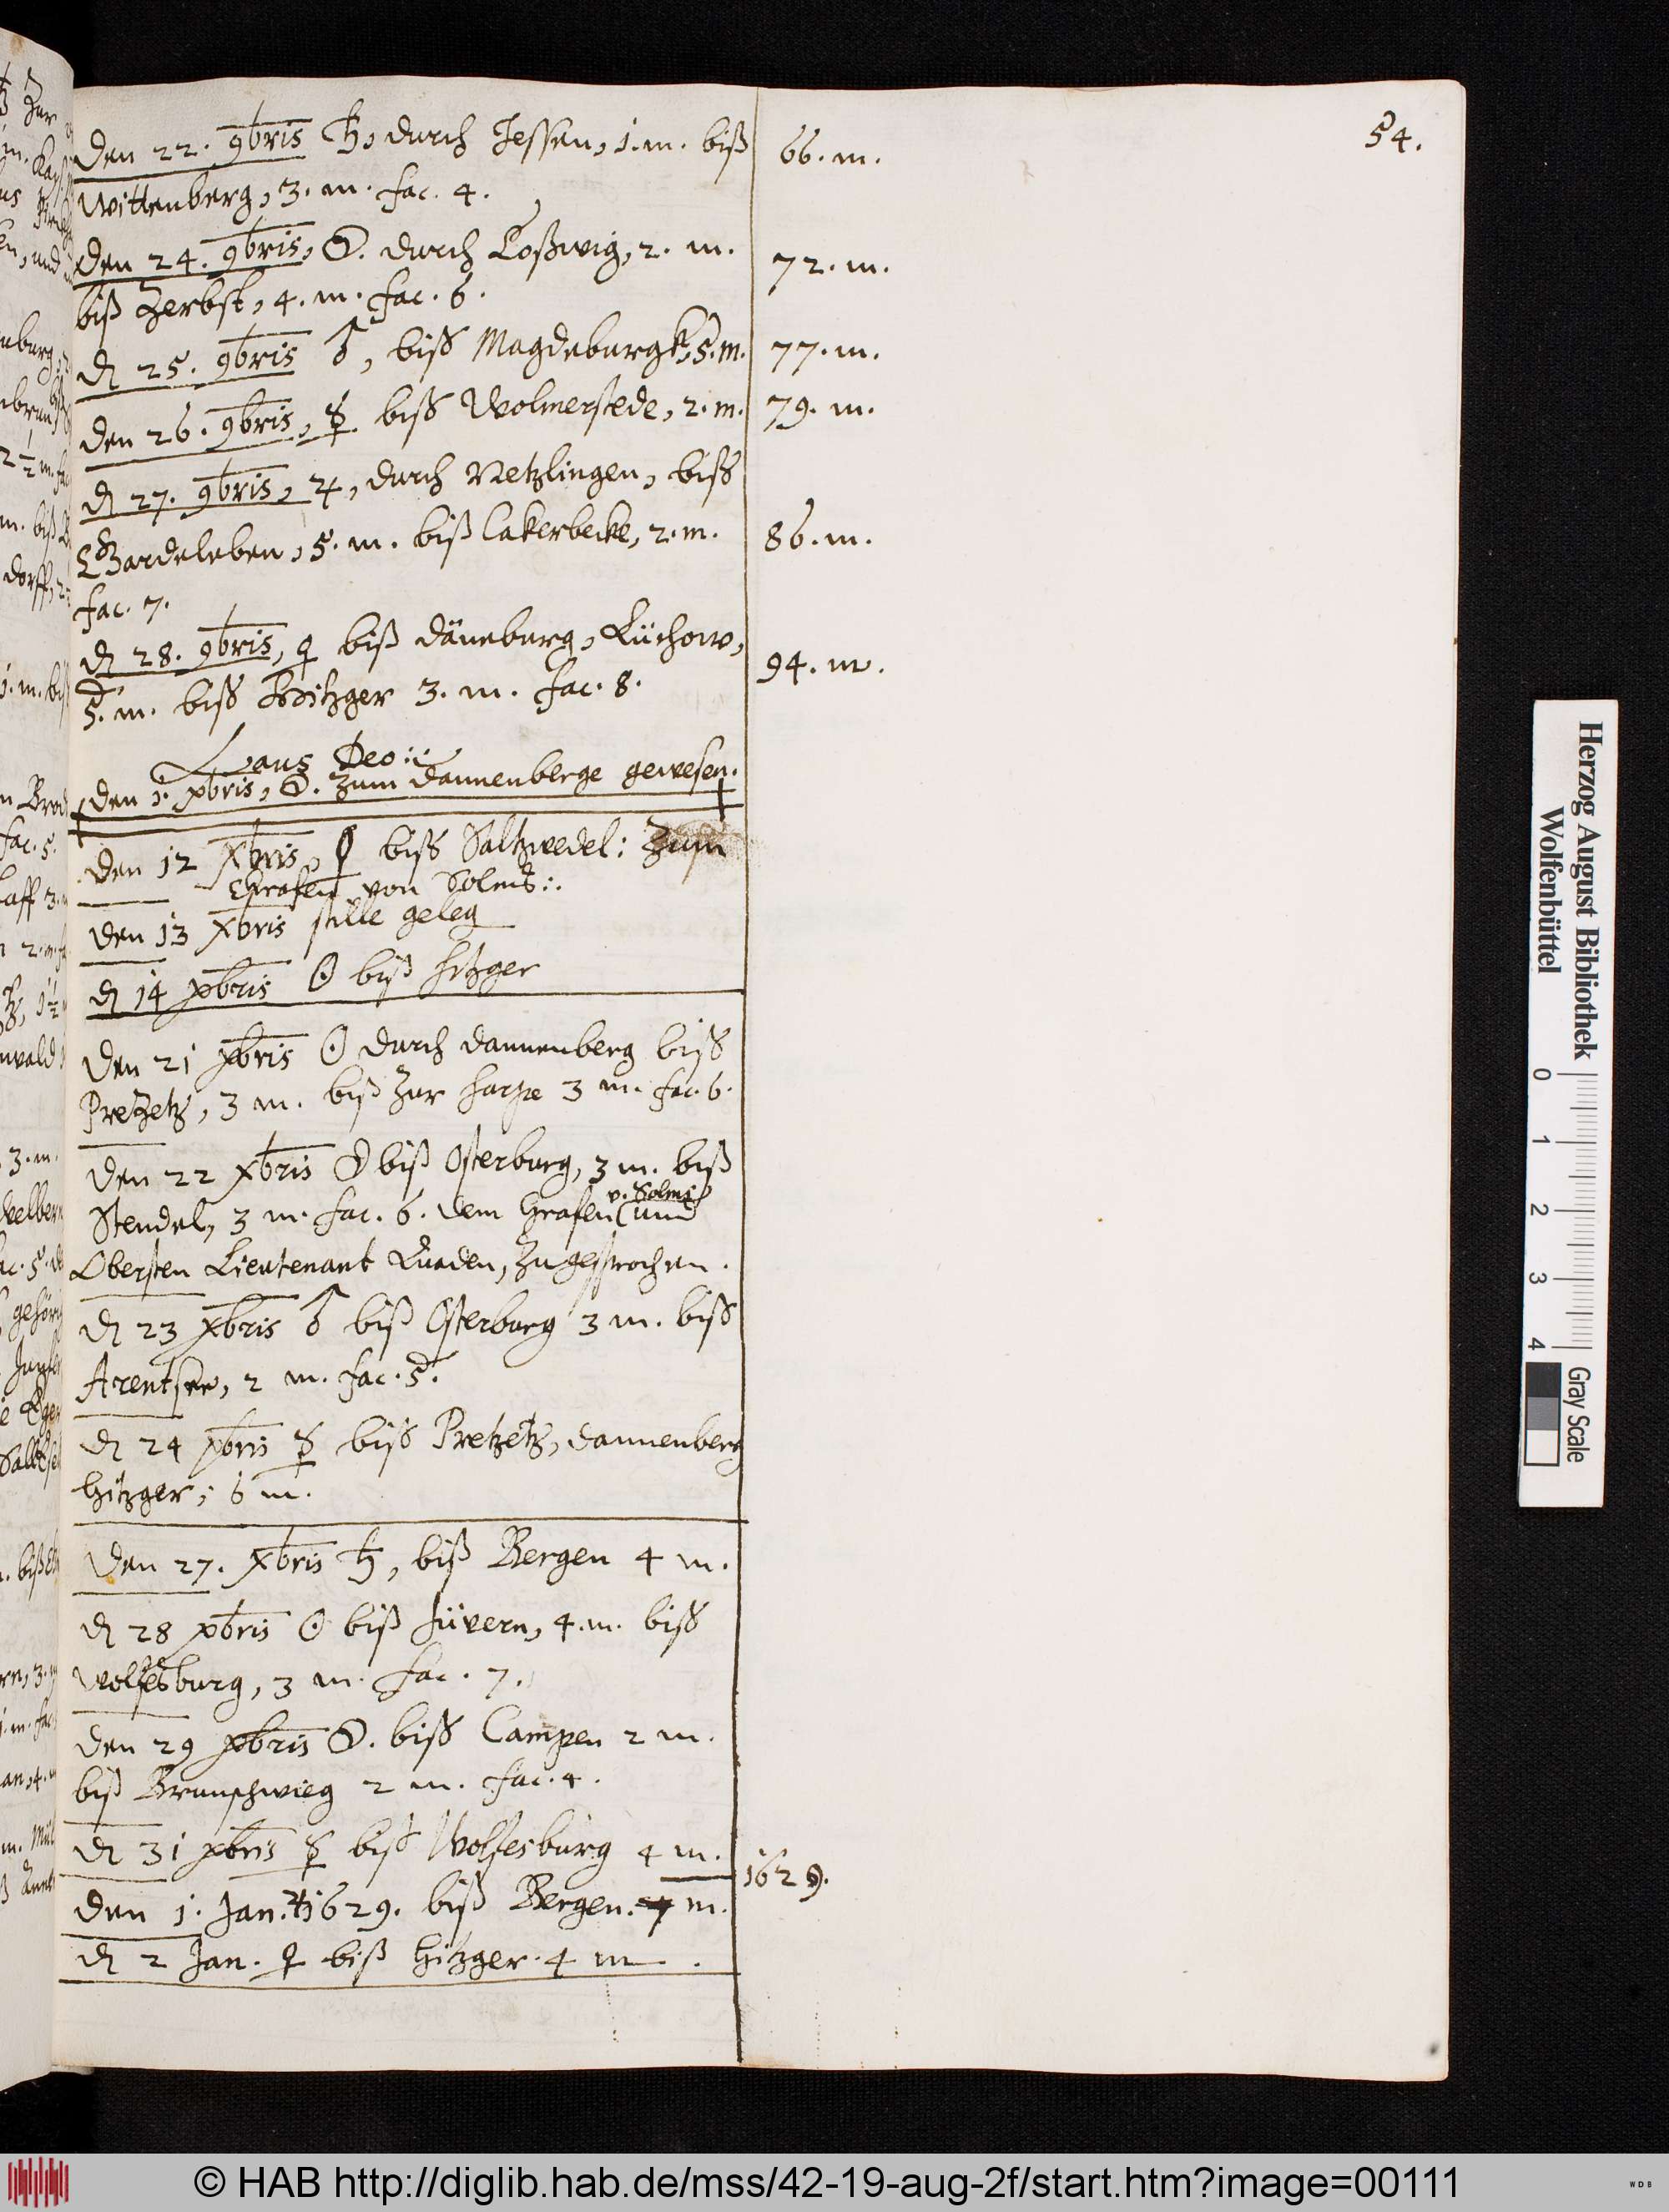 54.
Den 22. 9bris ♄, durch Jessen, 1. m. biß
66. m.
Wittenberg, 3. m. fac. 4.
Den 24. 9bris, ☽. durch Coßwig, 2. m.
72. m.
biß Zerbst, 4. m. fac. 6.
d 25. 9bris ♂, biß Magdeburgk, 5. m.
77. m.
Den 26. 9bris, ☿ biß Wolmerstede, 2. m.
79. m.
d 27. 9bris, ♃, durch Netzlingen, biß
Gardeleben, 5. m. biß Cakerbecke, 2. m.
86. m.
fac. 7.
d 28. 9bris, ♀ biß Däneburg, Lüchow,
94. m.
5. m. biß Hitzger 3. m. fac. 8.
Laus Deo
Den 1. xbris, ☽. zum Dannenberge gewesen.
Den 12 Xbris, ♀ biß Saltzwedel: Zum
Grafen von Solms:.
Den 13 Xbris stille geleg
d 14 xbris ☉ biß Hitzger
Den 21 xbris ☉ durch Dannenberg biß
Pretzetz, 3 m. biß zur Harpe 3 m. fac. 6.
Den 22 xbris ☽ biß Osterburg, 3 m. biß
v. Solms
Stendel, 3 m. fac. 6. dem Grafen und
Obersten Lieutenant Quaden, zugesprochen.
d 23 xbris ♂ biß Osterburg 3 m. biß
Arentsee, 2 m. fac. 5.
d 24 xbris ☿ biß Pretzetz, Dannenberg
Hitzger; 6 m.
Den 27. Xbris ♄, biß Bergen 4 m.
d 28 xbris ☉ biß Jüvern, 4. m. biß
Wolfesburg, 3 m. fac. 7.
Den 29 xbris ☽. biß Campen 2 m.
biß Brunschwieg 2 m. fac. 4.
d 31 xbris ☿ biß Wolfesburg 4 m.
1629.
Den 1. Jan. ♃ 1629. biß Bergen. 7 m.
d 2 Jan. ♀ biß Hitzger 4 m.
Herzog August Bibliothek
Wolfenbüttel
0 1 2 3 4
Gray Scale
© HAB http://diglib.hab.de/mss/42-19-aug-2f/start.htm?image=00111
WDB